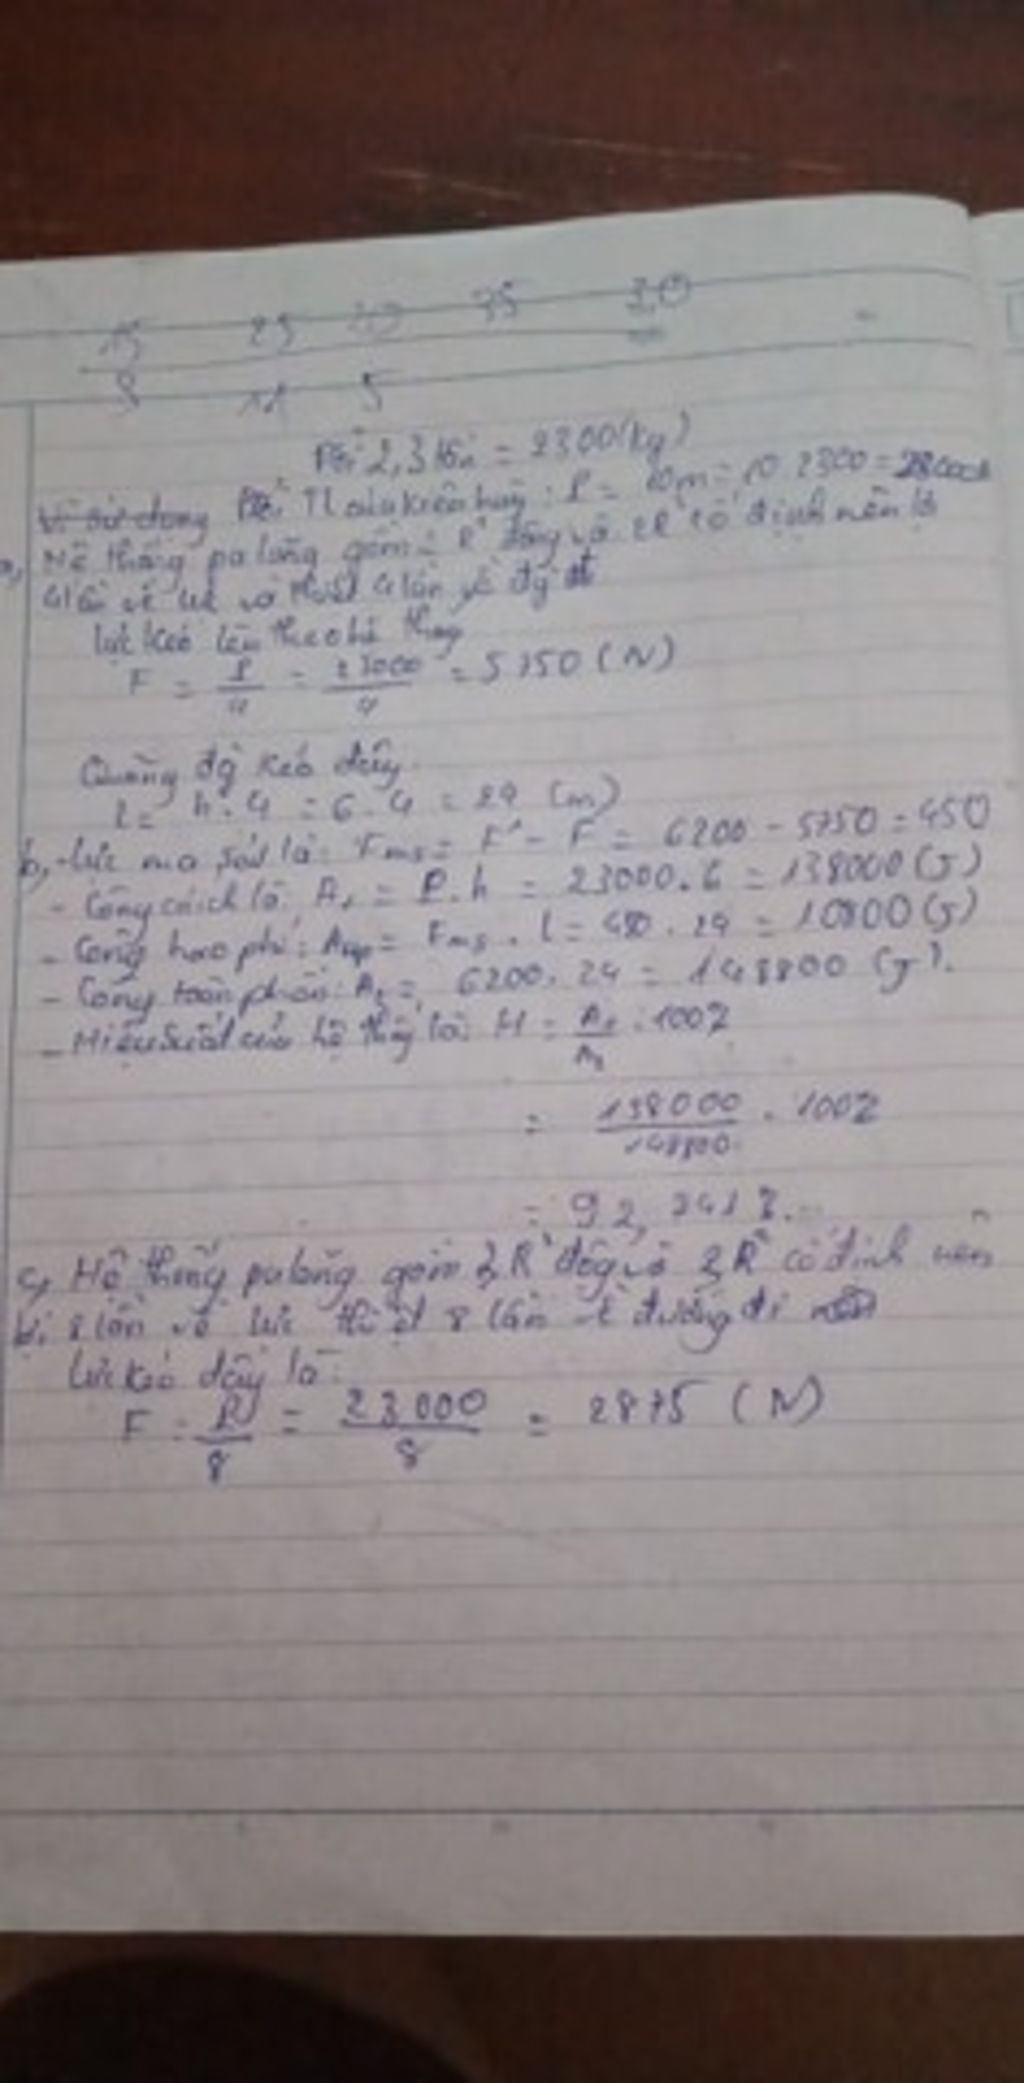 15 25 35 30
9 11 5
Đổi 2,3 tấn = 2300(kg)
Vì sử dụng Đổi TL của kiện hàng: P = 10m = 10.2300 = 23000N
a, Hệ thống pa lăng gồm 2 R² động và 2R² cố định nên lợi
4 lần về lực và thiệt 4 lần về đg đi
lực kéo lên theo hệ thống
F = P/4 = 23000/4 = 5750 (N)
Quãng đg kéo dây
l = h.4 = 6.4 = 24 (m)
b, - Lực ma sát là: Fms = F' - F = 6200 - 5750 = 450
- Công có ích là: A₁ = P.h = 23000.6 = 138000 (J)
- Công hao phí: Ahp = Fms . l = 450 . 24 = 10800 (J)
- Công toàn phần: A₂ = 6200.24 = 148800 (J).
- Hiệu suất của hệ thống là: H = A₁/A₂ . 100%
= 138000/148800 . 100%
= 92,741%.
c, Hệ thống pa lăng gồm R² động và R² cố định nên
8 lần về lực thiệt 8 lần về đường đi
Lực kéo dây là:
F = P/8 = 23000/8 = 2875 (N)